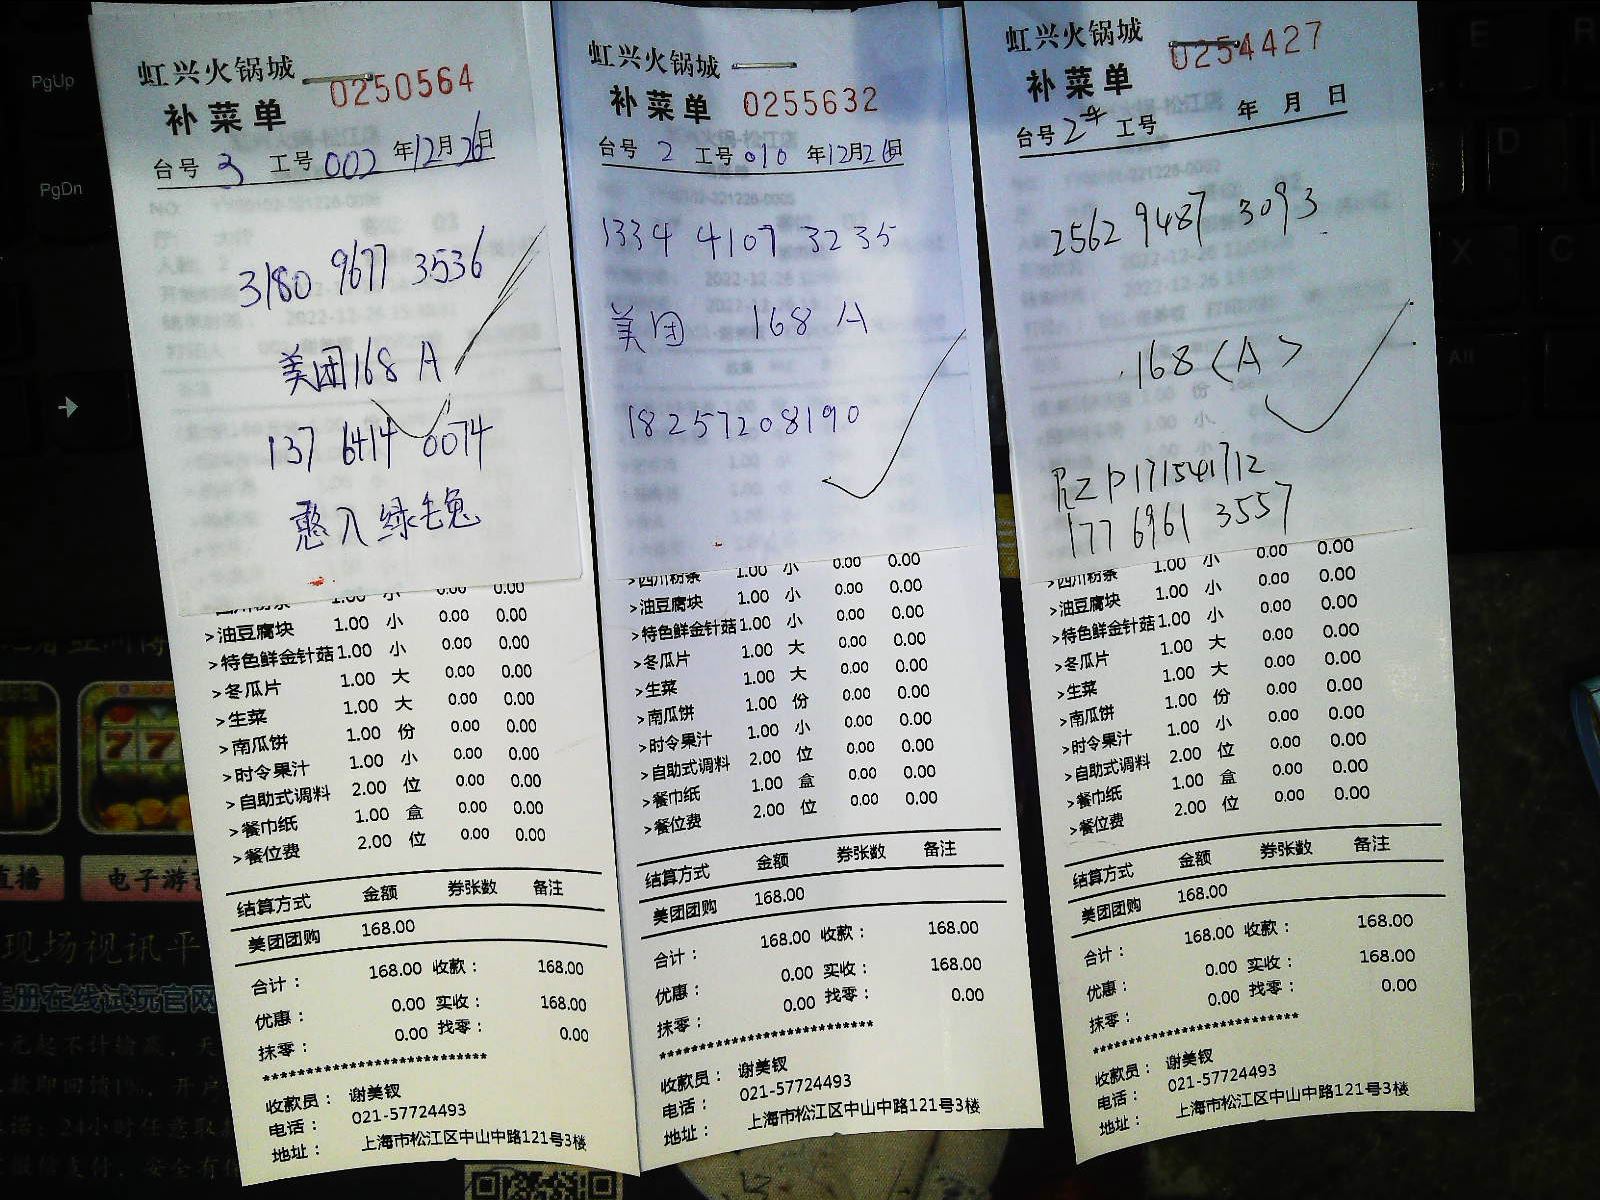 虹兴火锅城
补菜单 0250564
台号 3 工号 002 年12月26日
3180 9677 3536
美团168 A
137 6414 0074
憨入绿毛兔
>油豆腐块 1.00 小 0.00 0.00
>特色鲜金针菇 1.00 小 0.00 0.00
>冬瓜片 1.00 大 0.00 0.00
>生菜 1.00 大 0.00 0.00
>南瓜饼 1.00 份 0.00 0.00
>时令果汁 1.00 小 0.00 0.00
>自助式调料 2.00 位 0.00 0.00
>餐巾纸 1.00 盒 0.00 0.00
>餐位费 2.00 位 0.00 0.00
结算方式 金额 券张数 备注
美团团购 168.00
合计： 168.00 收款： 168.00
优惠： 0.00 实收： 168.00
抹零： 0.00 找零： 0.00
************************
收款员： 谢美钗
电话： 021-57724493
地址： 上海市松江区中山中路121号3楼
虹兴火锅城
补菜单 0255632
台号 2 工号 010 年12月26日
1334 4107 3235
美团 168 A
18257208190
>四川粉条 1.00 小 0.00 0.00
>油豆腐块 1.00 小 0.00 0.00
>特色鲜金针菇 1.00 小 0.00 0.00
>冬瓜片 1.00 大 0.00 0.00
>生菜 1.00 大 0.00 0.00
>南瓜饼 1.00 份 0.00 0.00
>时令果汁 1.00 小 0.00 0.00
>自助式调料 2.00 位 0.00 0.00
>餐巾纸 1.00 盒 0.00 0.00
>餐位费 2.00 位 0.00 0.00
结算方式 金额 券张数 备注
美团团购 168.00
合计： 168.00 收款： 168.00
优惠： 0.00 实收： 168.00
抹零： 0.00 找零： 0.00
************************
收款员： 谢美钗
电话： 021-57724493
地址： 上海市松江区中山中路121号3楼
虹兴火锅城
补菜单 0254427
台号 2 工号 年 月 日
2562 9487 3093
168<A>
P171541712
177 6961 3557
>四川粉条 1.00 小 0.00 0.00
>油豆腐块 1.00 小 0.00 0.00
>特色鲜金针菇 1.00 小 0.00 0.00
>冬瓜片 1.00 大 0.00 0.00
>生菜 1.00 大 0.00 0.00
>南瓜饼 1.00 份 0.00 0.00
>时令果汁 1.00 小 0.00 0.00
>自助式调料 2.00 位 0.00 0.00
>餐巾纸 1.00 盒 0.00 0.00
>餐位费 2.00 位 0.00 0.00
结算方式 金额 券张数 备注
美团团购 168.00
合计： 168.00 收款： 168.00
优惠： 0.00 实收： 168.00
抹零： 0.00 找零： 0.00
************************
收款员： 谢美钗
电话： 021-57724493
地址： 上海市松江区中山中路121号3楼
PgUp
PgDn
E
R
D
X
C
直播
电子游
现场视讯平
注册在线试玩官网